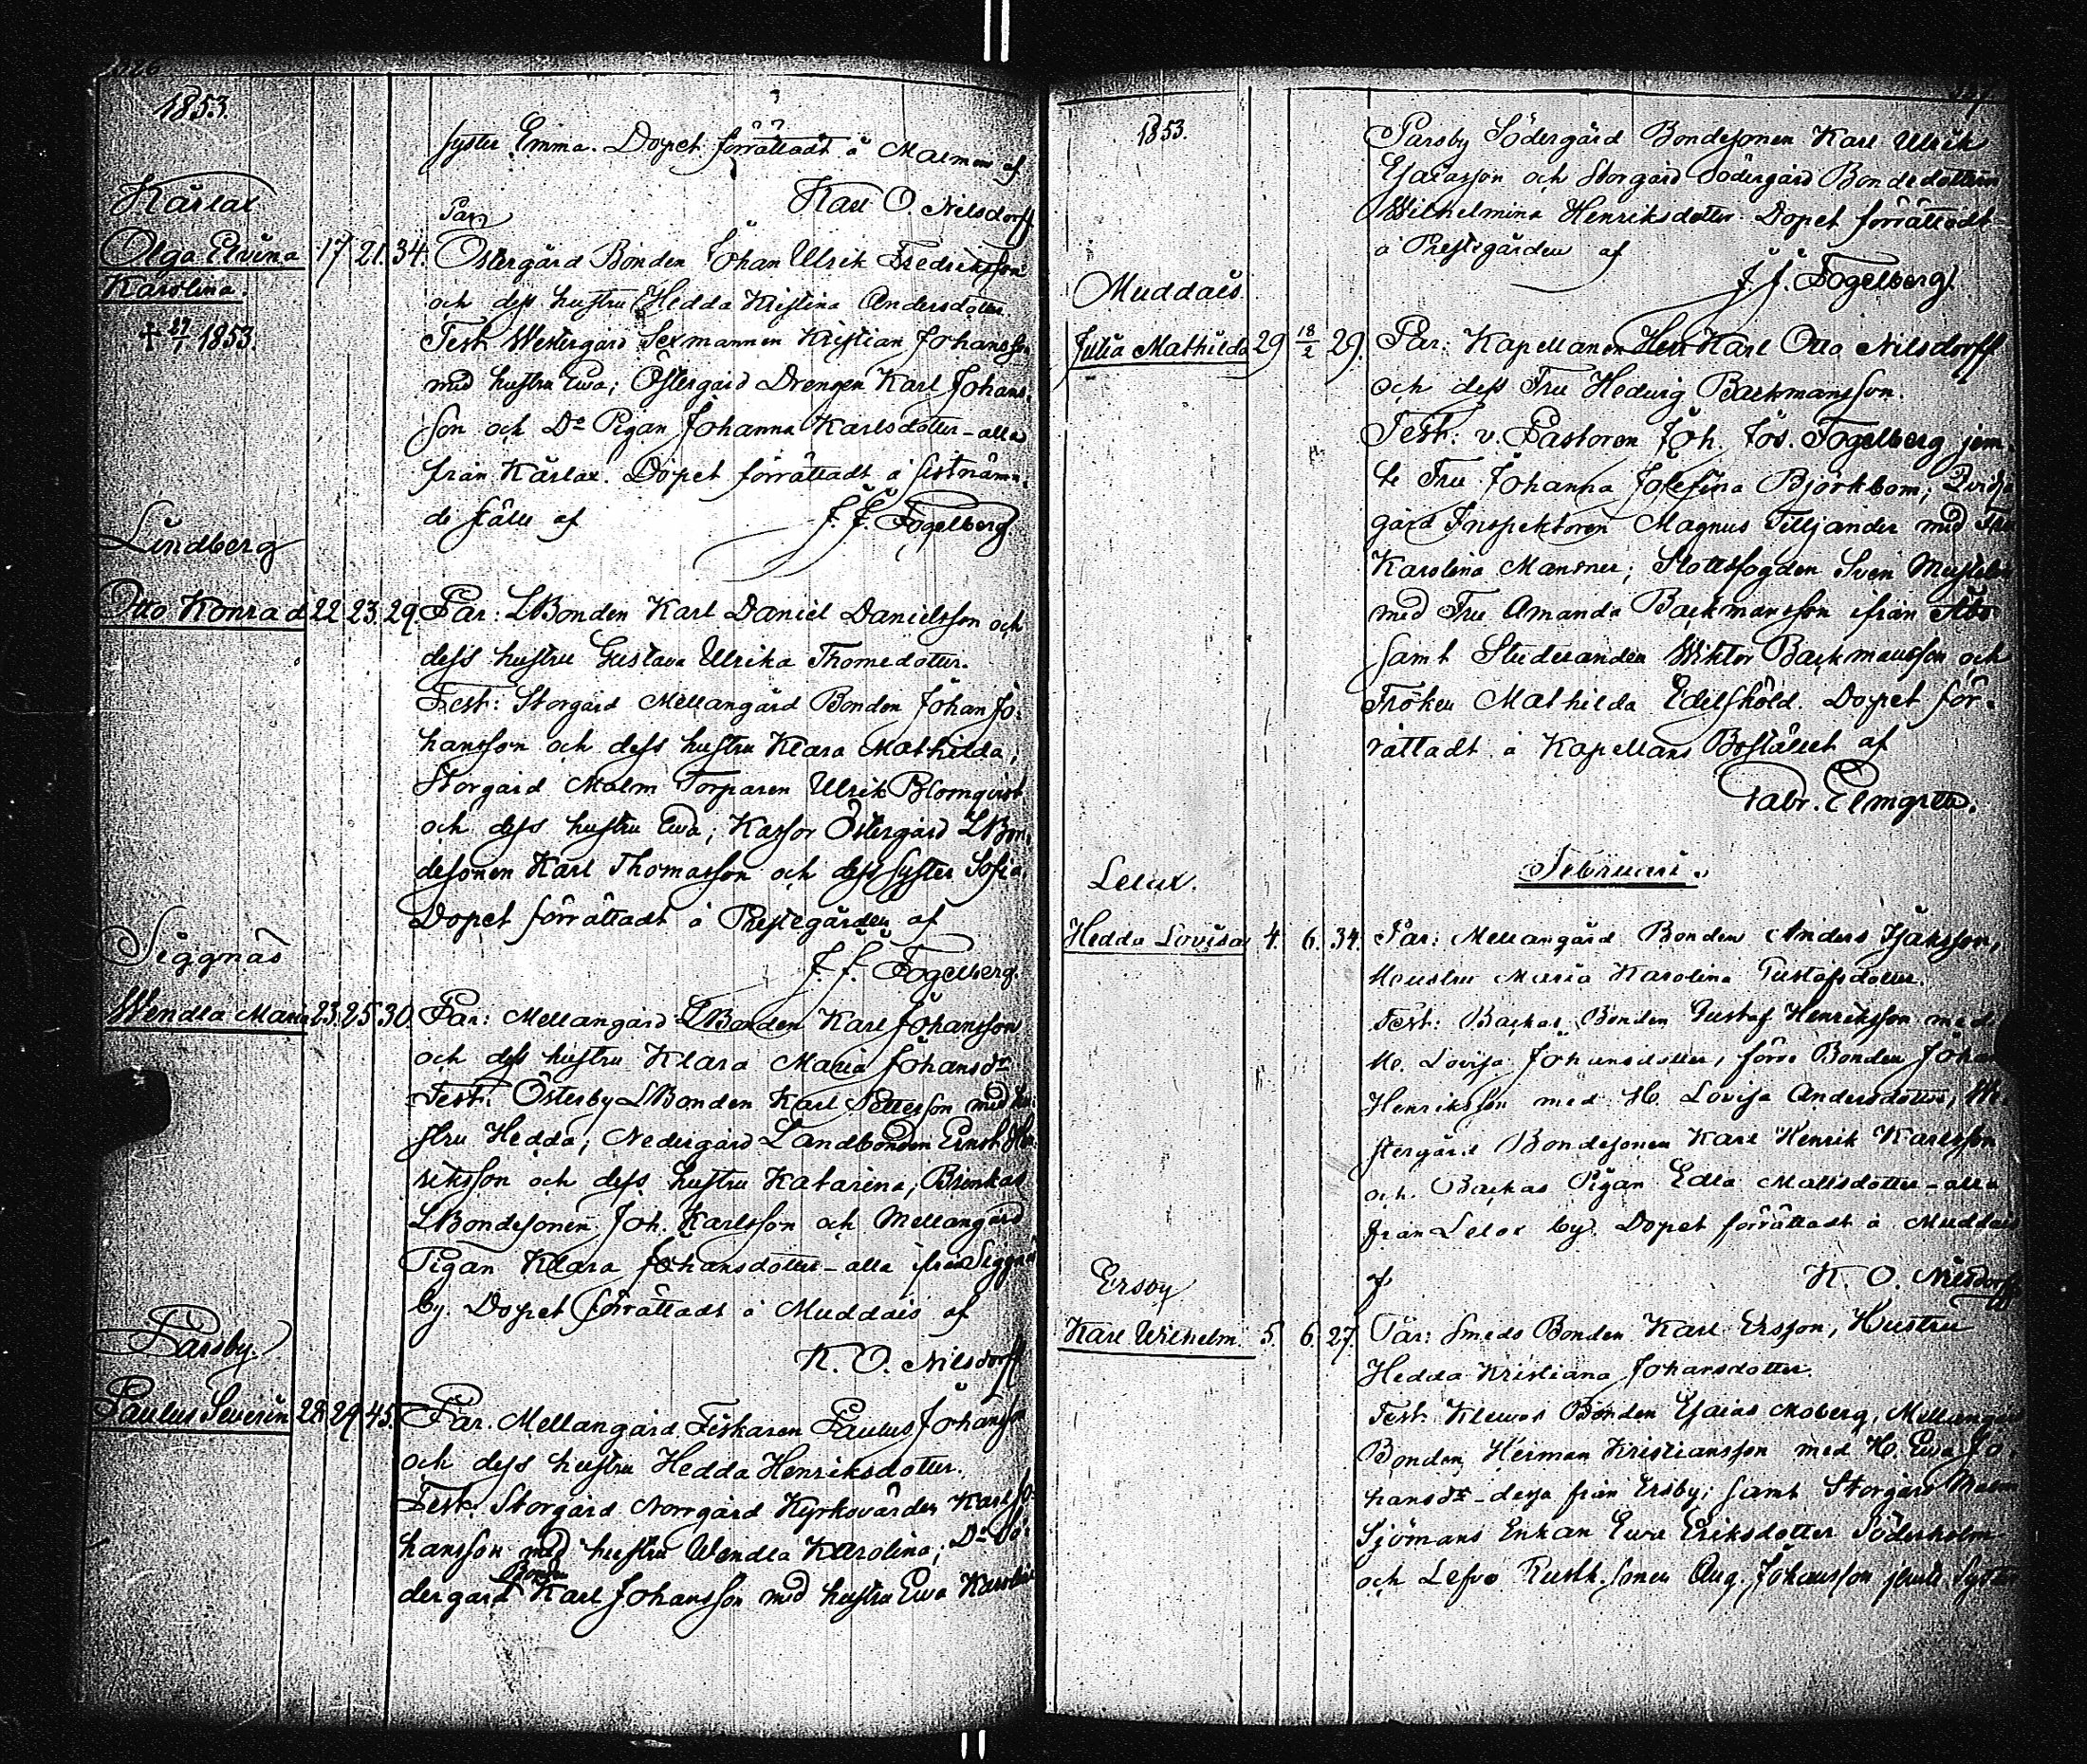 1853.
syster Emma. Dopet förrättadt å Malmen af
Karl O. Nilsdorff
Kärlax
Par
Olga Elvina 17. 21. 34. Östergård Bonden Johan Ulrik Fredriksson
Karolina.
och dess hustru Hedda Kristina Andersdotter.
† 27/1 1853.
Test. Westergård Sexmannen Kristian Johansson
med hustru Ewa; Östergård Drengen Karl Johans-
son och Do Pigan Johanna Karlsdotter - alla
från Kärlax. Dopet förrättadt å sistnämn-
de ställe af J. J. Fogelberg.
Lindberg
Otto Konrad 22. 23. 29. Par: LBonden Karl Daniel Danielsson och
dess hustru Gustava Ulrika Thomedotter.
Test: Storgård Mellangård Bonden Johan Jo-
hansson och dess hustru Klara Mathilda;
Storgård Malm Torparen Ulrik Blomqvist
och dess hustru Ewa; Kassor Östergård LBon-
desonen Karl Thomasson och dess syster Sofia.
Dopet förrättadt å Prestegården af
J. J. Fogelberg.
Siggnäs
Wendla Maria 23. 25. 30. Par: Mellangård LBonden Karl Johansson
och dess hustru Klara Maria Johansdr
Test: Österby LBonden Karl Pettersson med hu-
stru Hedda; Nedergård Landbonden Ernst Hen-
riksson och dess hustru Katarina; Brinkas
LBondesonen Joh. Karlsson och Mellangård
Pigan Klara Johansdotter - alla ifrån Siggnäs
by. Dopet förrättadt å Muddais af
K. O. Nilsdorff
Parsby.
Paulus Severin 28. 29. 45. Par. Mellangård Fiskaren Paulus Johansson
och dess hustru Hedda Henriksdotter.
Test. Storgård Norrgård Kyrkovärden Karl Jo-
hansson med hustru Wendla Karolina; Do Sö-
Bonden
dergård Karl Johansson med hustru Ewa Karolina
1853.
Parsby Södergård Bondesonen Karl Ulrik
Esaiasson och Storgård Södergård Bondedottern
Wilhelmina Henriksdotter. Dopet förrättadt
å Prestegården af
J. J. Fogelberg.
Muddais
Julia Mathilda 29 18/2 29. Par: Kapellanen Herr Karl Otto Nilsdorff
och dess Fru Hedvig Backmansson.
Test: v. Pastoren Joh. Jos. Fogelberg jem-
te Fru Johanna Josefina Björkbom;
gård Inspektoren Magnus Tilljander med Fru
Karolina Mansner; Slottsfogden Sven
med Fru Amanda Backmansson ifrån Åbo
samt Studeranden Wiktor Backmansson och
Fröken Mathilda Edelsköld. Dopet för-
rättadt å Kapellans Bostället af
Fabr. Elmgren.
Februari.
Lelax.
Hedda Lovisa 4. 6. 34. Par: Mellangård Bonden Anders Isaksson,
Houstru Maria Karolina Gustafsdotter.
Test: Backas Bonden Gustaf Henriksson med
H. Lovisa Johansdotter, förre Bonden Johan
Henriksson med H. Lovisa Andersdotter, We-
stergård Bondesonen Karl Henrik Karlsson
och Backas Pigan Edla Mattsdotter - alla
från Lelax by. Dopet förrättadt å Muddais
af K. O. Nilsdorff
Ersby
Karl Wilhelm. 5. 6. 27. Par: Smeds Bonden Karl Ersson, Hustru
Hedda Kristiana Johansdotter.
Test. Klemos Bonden Esaias Moberg, Mellangård
Bonden Herman Kristiansson med H. Ewa Jo-
hansdr - dessa från Ersby; samt Storgård Malm
Sjömans Enkan Ewa Eriksdotter Söderholm
och Lefvo Rusth. sonen Aug. Johansson jemte Syster